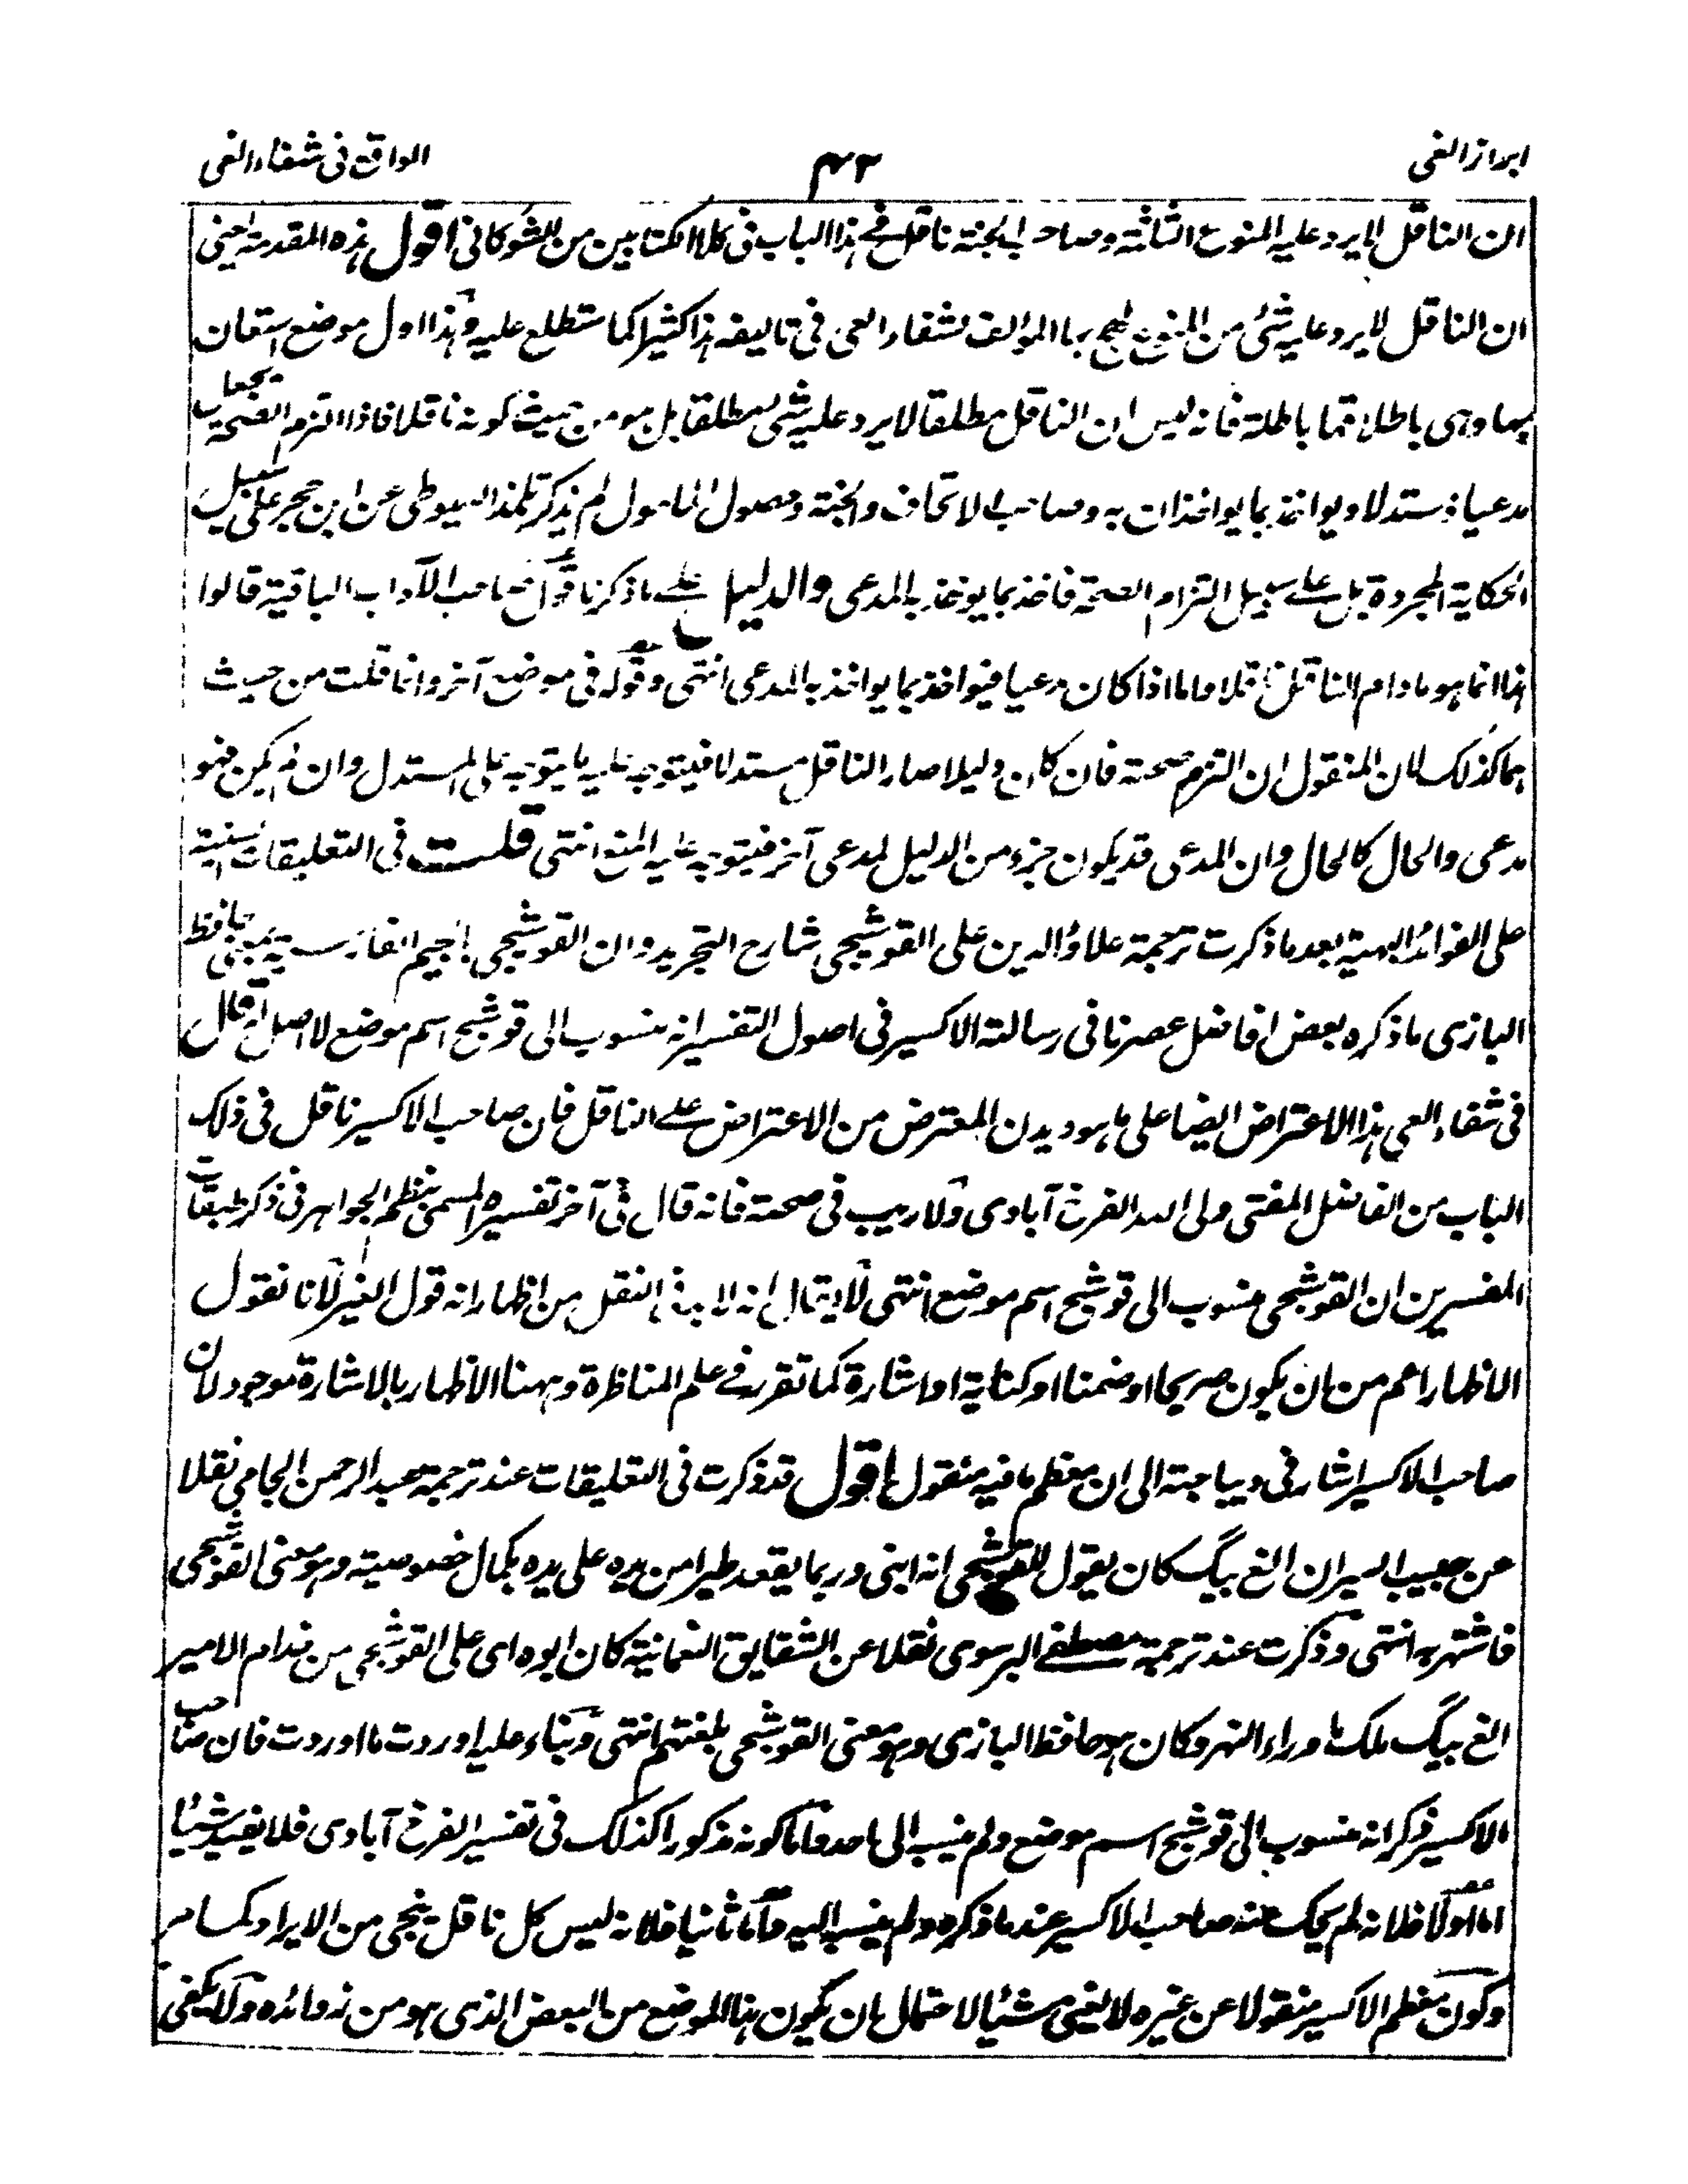 ابراز الغی
٤٣
الواقع فی شفاء العی
ان الناقل لا یرد علیه المنوع الثلثة وصاحب الجنة ناقل فی هذا الباب فی کلا الکتابین من الشوکانی اقول هذه المقدمة اعنی
ان الناقل لا یرد علیه شئ من المنوع لهج بها المؤلف لشفاء العی فی تالیفه هذا کثیرا کما ستطلع علیه وهذا اول موضع استعان
بها وهی باطلة فانه لیس ان الناقل مطلقا لا یرد علیه شئ مطلقا بل هو من حیث کونه ناقلا فاذا التزم الصحة
مدعیا ومستدلا ویواخذ بما یواخذان به وصاحب الاتحاف والجنة وحصول المامول لم یذکر تلمذ السیوطی عن ابن حجر علی سبیل
الحکایة المجردة بل علی سبیل التزام الصحة فاخذ بما یوخذ به المدعی والدلیل علی ما ذکرنا قول صاحب الآداب الباقیة قالوا
هذا انما هو ما دام الناقل ناقلا واما اذا کان مدعیا فیواخذ بما یواخذ به المدعی انتهی وقوله فی موضع آخر وانما قلت من حیث
هما کذلک لان المنقول ان التزم صحته فان کان دلیلا صار الناقل مستدلا فیتوجه علیه ما یتوجه علی المستدل وان لم یکن فهو
مدعی والحال کالحال وان المدعی قد یکون جزء من الدلیل لمدعی آخر فیتوجه علیه المنع انتهی قلت فی التعلیقات السنیة
علی الفوائد البهیة بعد ما ذکرت ترجمة علاؤ الدین علی القوشجی شارح التجرید وان القوشجی بالجیم الفارسیة بمعنی حافظ
البازی ما ذکره بعض افاضل عصرنا فی رسالته الاکسیر فی اصول التفسیر انه منسوب الی قوشج اسم موضع لا اصل له قال
فی شفاء العی هذا الاعتراض ایضا علی ما هو دیدن المعترض من الاعتراض علی الناقل فان صاحب الاکسیر ناقل فی ذلک
الباب من الفاضل المفتی ولی الله الفرخ آبادی ولا ریب فی صحته فانه قال فی آخر تفسیره المسمی بنظم الجواهر فی ذکر طبقات
المفسرین ان القوشجی منسوب الی قوشج اسم موضع انتهی لا یقال انه لا بد فی النقل من اظهار انه قول الغیر لانا نقول
الاظهار اعم من ان یکون صریحا او ضمنا او کنایة او اشارة کما تقرر فی علم المناظرة وههنا الاظهار بالاشارة موجود لان
صاحب الاکسیر اشار فی دیباجته الی ان معظم ما فیه منقول اقول قد ذکرت فی التعلیقات عند ترجمة عبد الرحمن الجامی نقلا
عن حبیب السیر ان الغ بیگ کان یقول للقوشجی انه ابنی وربما یقعد طیرا من یده علی یده بکمال خصوصیته وهو معنی القوشجی
فاشتهر به انتهی وذکرت عند ترجمة مصطفی البرسوی نقلا عن الشقایق النعمانیة کان ابوه ای علی القوشجی من خدام الامیر
الغ بیگ ملک ما وراء النهر وکان هو حافظ البازی وهو معنی القوشجی بلغتهم انتهی وبناء علیه اوردت ما اوردت فان صاحب
الاکسیر ذکر انه منسوب الی قوشج اسم موضع ولم ینسب الی احد واما کونه مذکورا کذلک فی تفسیر الفرخ آبادی فلا یفید شیئا
اما اولا فلانه لم یحک عنه صاحب الاکسیر عند ما ذکره ولم ینسب الیه واما ثانیا فلانه لیس کل ناقل ینجی من الایراد کما مر
وکون معظم الاکسیر منقولا عن غیره لا یغنی شیئا لاحتمال ان یکون هذا الموضع من البعض الذی هو من زوائده ولا یکفی